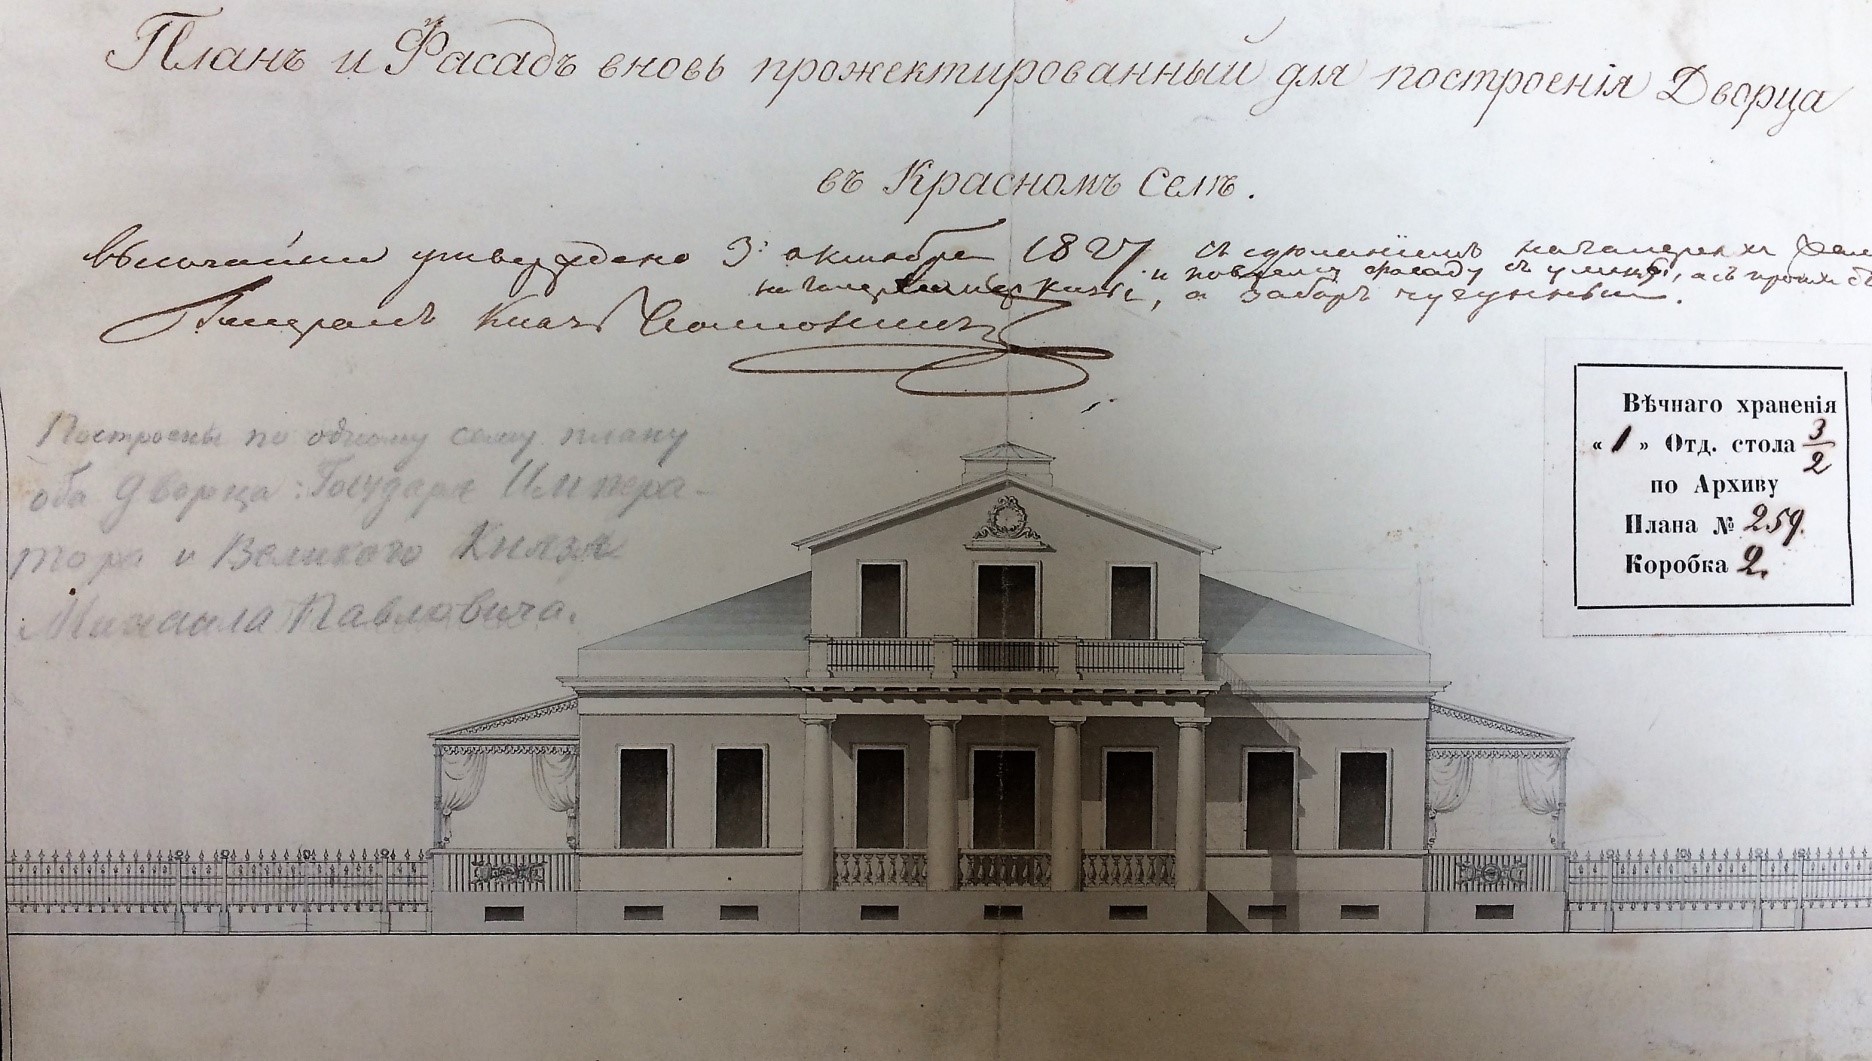 Планъ и Фасадъ вновь прожектированный для построенія Дворца
въ Красномъ Селѣ.
Высочайше утверждено 3: октября 1827 съ
и по фасаду съ улицы,
на галереи , а заборъ чугунный.
Генералъ Князь
Построены по одному сему плану
оба дворца: Государя Импера-
тора и Великого Князя
Михаила Павловича.
Вѣчнаго храненія
« 1 » Отд. стола 3/2
по Архиву
Плана № 259.
Коробка 2.